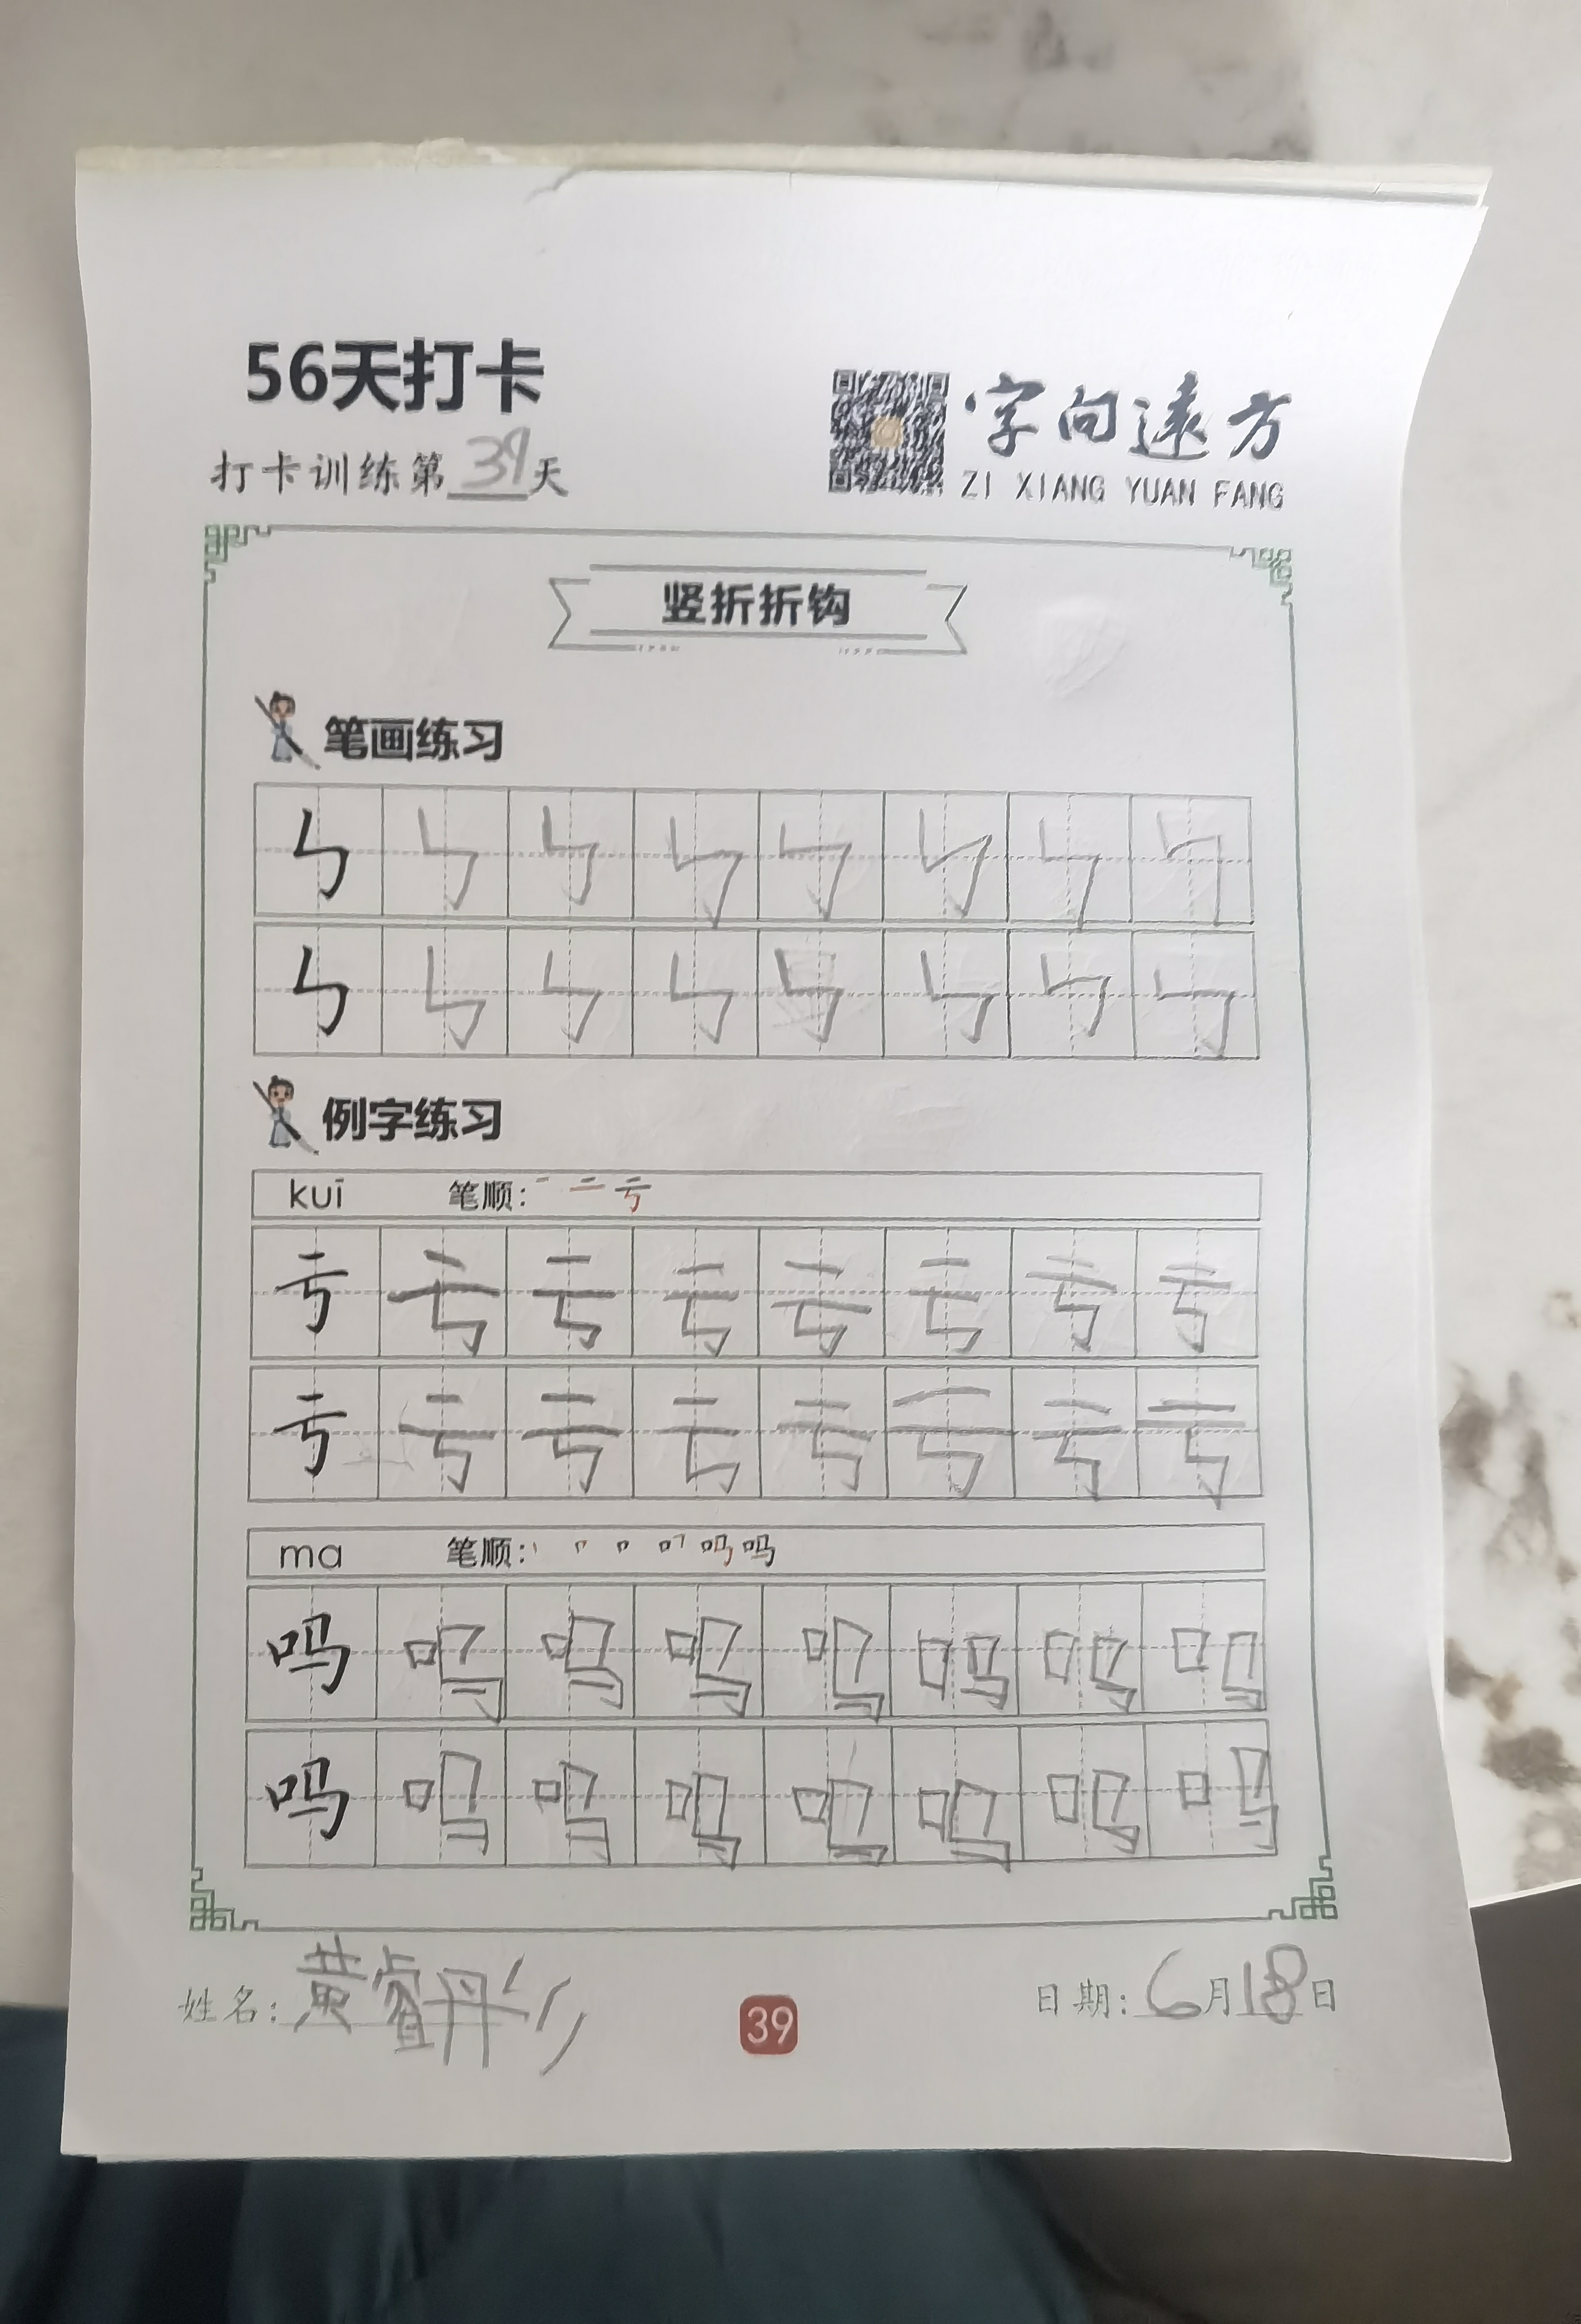 56天打卡
打卡训练第39天
字向遠方
ZI XIANG YUAN FANG
竖折折钩
笔画练习
ㄣ ㄣ ㄣ ㄣ ㄣ ㄣ ㄣ ㄣ
ㄣ ㄣ ㄣ ㄣ ㄣ ㄣ ㄣ ㄣ
例字练习
kuī 笔顺: 一 二 亏
亏 亏 亏 亏 亏 亏 亏 亏
亏 亏 亏 亏 亏 亏 亏 亏
ma 笔顺: 吗
吗 吗 吗 吗 吗 吗 吗 吗
吗 吗 吗 吗 吗 吗 吗 吗
姓名: 黄睿彤
39
日期: 6月18日